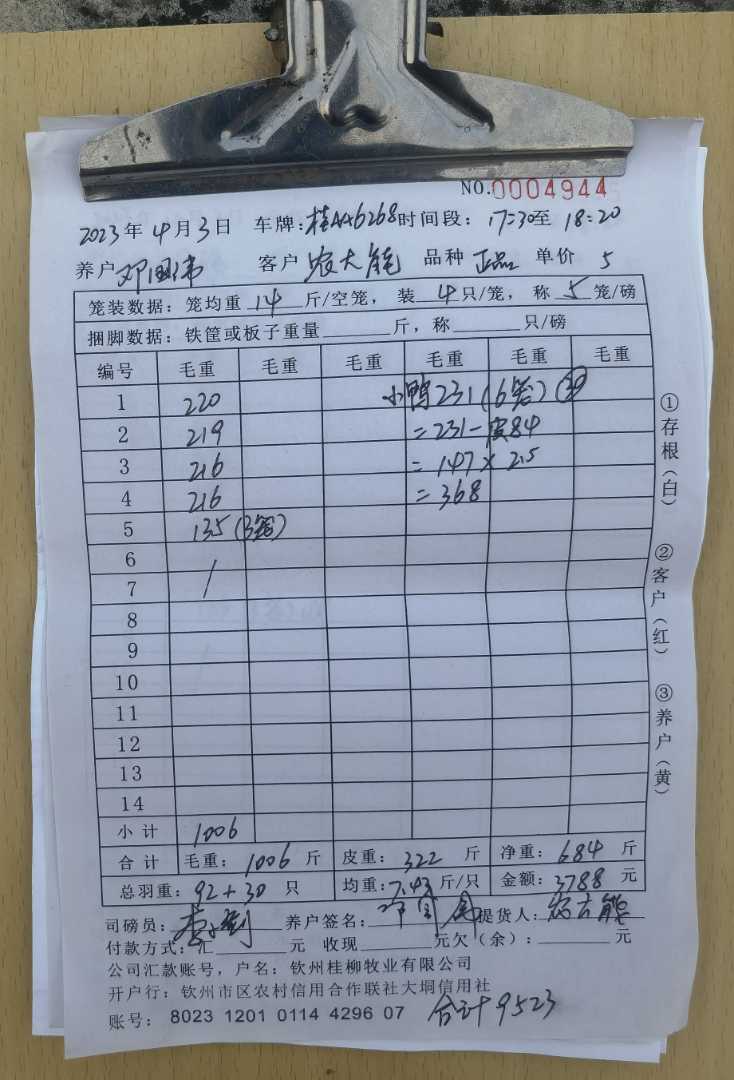 NO.0004944
2023年4月3日 车牌:桂AA6268 时间段: 17:30至 18:20
养户 邓国伟 客户 农大能 品种 正品 单价 5
笼装数据: 笼均重 14 斤/空笼, 装 4 只/笼, 称 5 笼/磅
捆脚数据: 铁筐或板子重量 斤, 称 只/磅
编号 毛重 毛重 毛重 毛重 毛重 毛重
1 220 小鸭231(6笼)
2 219 =231-皮84
3 216 =147×2.5
4 216 =368
5 135(3笼)
6
7
8
9
10
11
12
13
14
小计 1006
合计 毛重: 1006 斤 皮重: 322 斤 净重: 684 斤
总羽重: 92+30 只 均重: 7.43 斤/只 金额: 3788 元
司磅员: 养户签名: 提货人: 农大能
付款方式: 汇 元 收现 元欠(余): 元
公司汇款账号, 户名: 钦州桂柳牧业有限公司
开户行: 钦州市区农村信用合作联社大垌信用社
账号: 8023 1201 0114 4296 07 合计9523
①存根(白)
②客户(红)
③养户(黄)